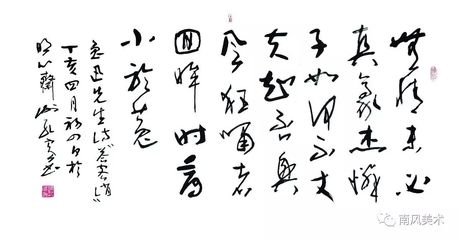 無情未必
真豪杰憐
子如何不丈
夫知否興
风狂啸者
回眸时看
小於菟
鲁迅先生诗答客诮
丁亥四月初四日於
南风美术